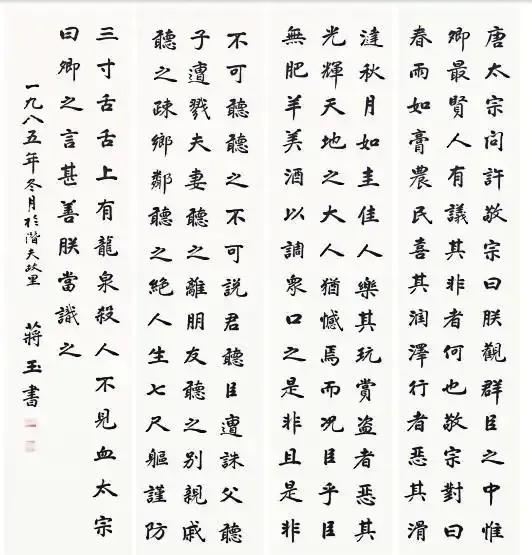 唐太宗問許敬宗曰朕觀群臣之中惟
卿最賢人有議其非者何也敬宗對曰
春雨如膏農民喜其润澤行者惡其滑
澾秋月如圭佳人樂其玩賞盗者惡其
光輝天地之大人猶憾焉而况臣乎臣
無肥羊美酒以調衆口之是非且是非
不可聽聽之不可説君聽臣遭誅父聽
子遭戮夫妻聽之離朋友聽之别親戚
聽之疎鄉鄰聽之絕人生七尺軀謹防
三寸舌舌上有龍泉殺人不見血太宗
曰卿之言甚善朕當識之
一九八五年冬月於潛夫故里 蔣玉書